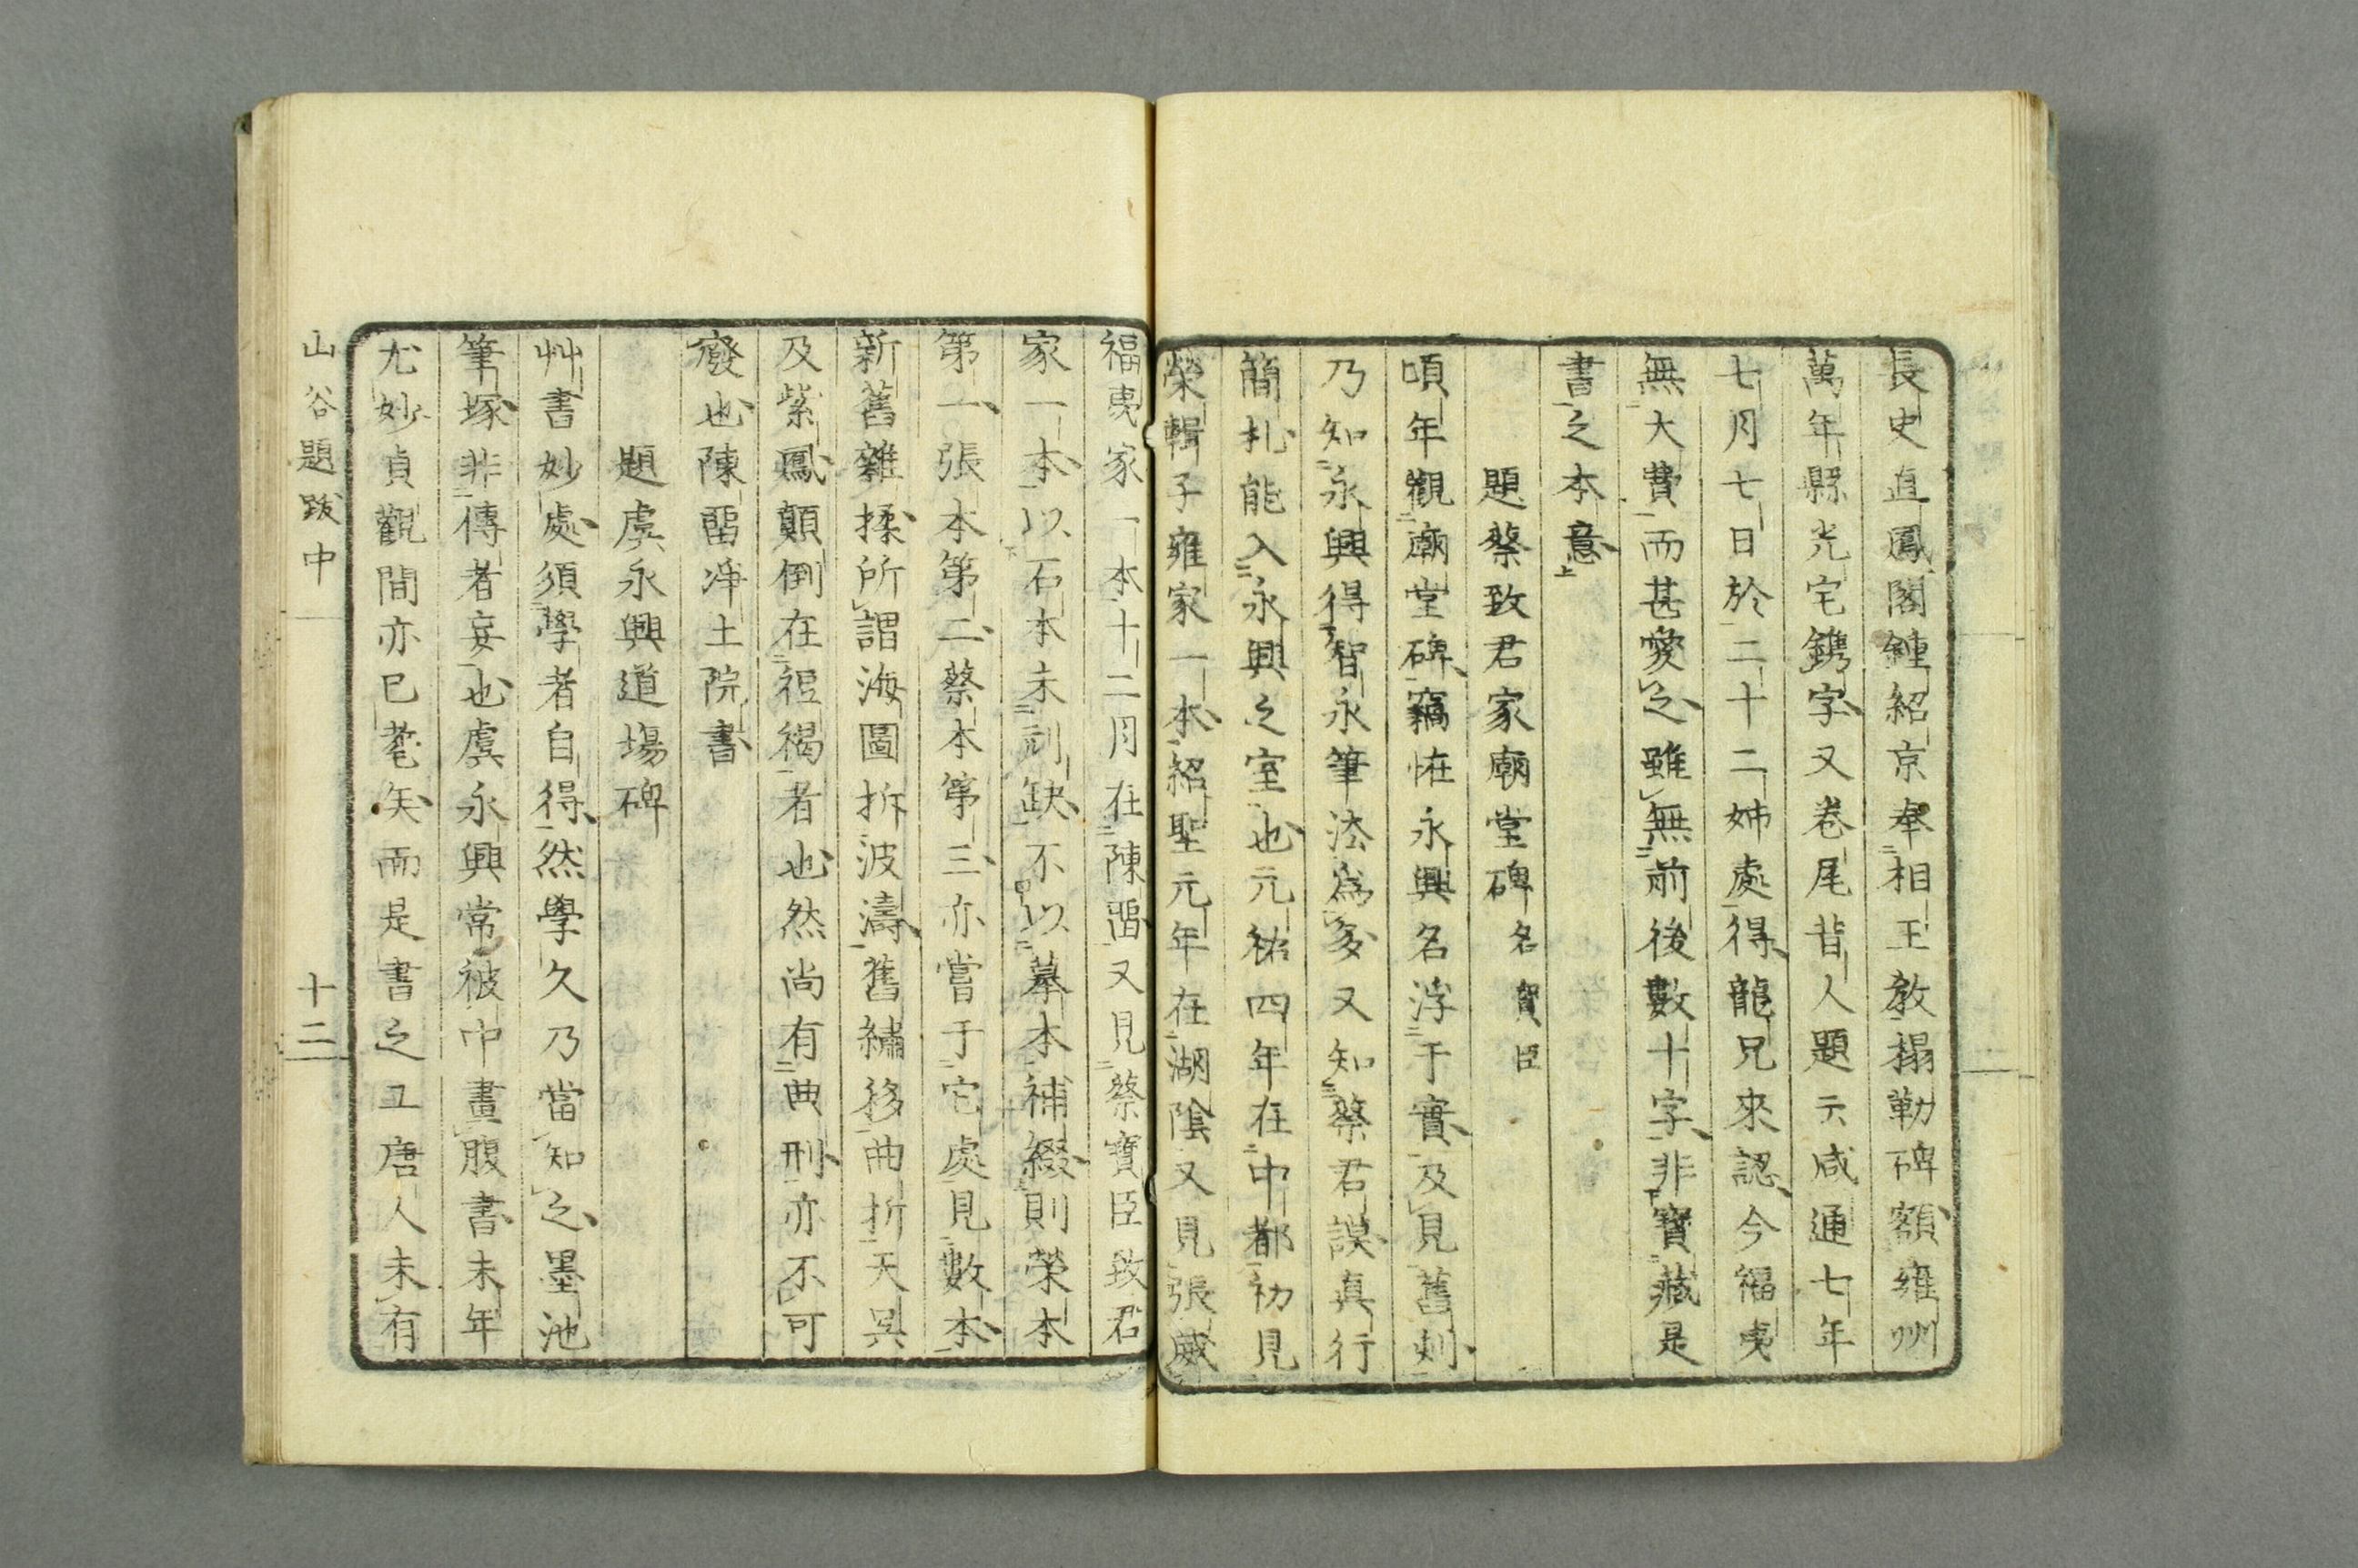 長史直鳳閣鍾紹京奉相王教搨勒碑額雍州
萬年縣光宅鐫字又卷尾昔人題云咸通七年
七月七日於二十二姊處得龍兄來認今福夷
無大費而甚愛之雖無前後數十字非寶藏是
書之本意
題蔡致君家廟堂碑 名寶臣
頃年觀廟堂碑竊恠永興名浮于實及見舊刻
乃知永興得智永筆法爲多又知蔡君謨真行
簡札能入永興之室也元祐四年在中都初見
榮輯子雍家一本紹聖元年在湖陰又見張威
福夷家一本十二月在陳畱又見蔡寶臣致君
家一本以石本未刓缺不以摹本補綴則榮本
第一張本第二蔡本第三亦嘗于它處見數本
新舊雜揉所謂海圖拆波濤舊繡移曲折天吳
及紫鳳顛倒在裋褐者也然尚有典刑亦不可
廢也陳畱淨土院書
題虞永興道塲碑
艸書妙處須學者自得然學久乃當知之墨池
筆塚非傳者妄也虞永興常被中畫腹書未年
尤妙貞觀間亦已耄矣而是書之工唐人未有
山谷題跋中 十二